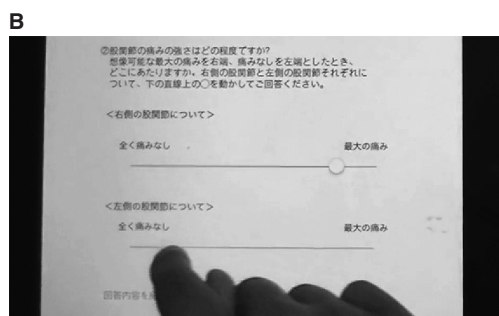 B
②股関節の痛みの強さはどの程度ですか?
想像可能な最大の痛みを右端、痛みなしを左端としたとき、
どこにあたりますか。右側の股関節と左側の股関節それぞれに
ついて、下の直線上の○を動かしてご回答ください。
＜右側の股関節について＞
全く痛みなし 最大の痛み
＜左側の股関節について＞
全く痛みなし 最大の痛み
回答内容を